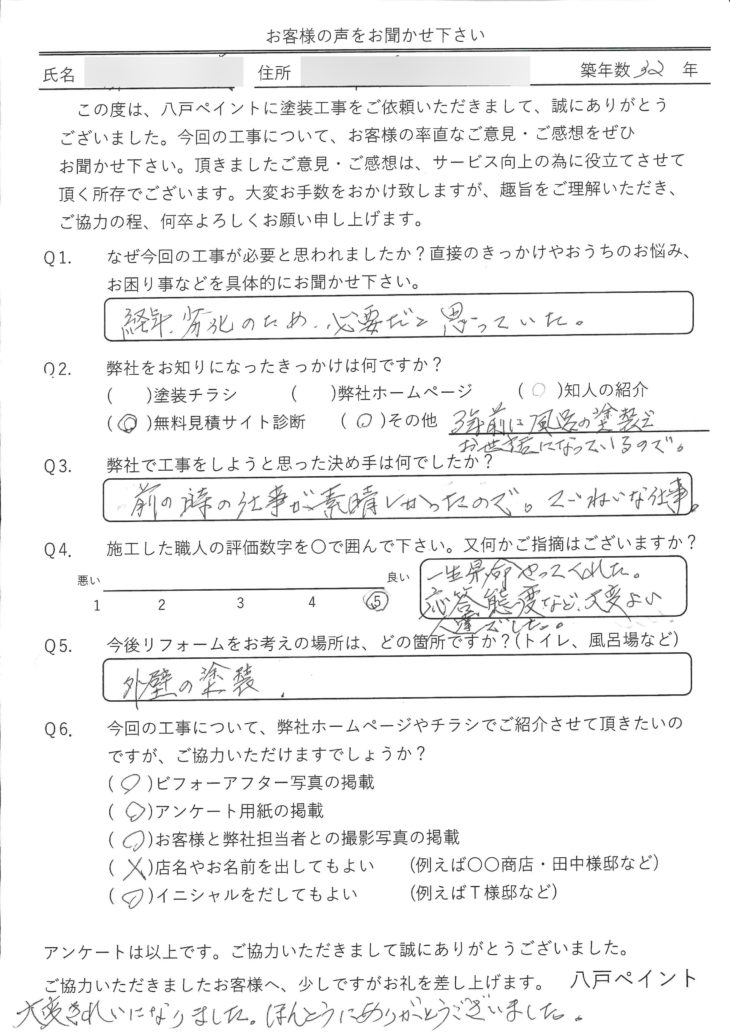 お客様の声をお聞かせ下さい
氏名 住所 築年数 32 年
この度は、八戸ペイントに塗装工事をご依頼いただきまして、誠にありがとう
ございました。今回の工事について、お客様の率直なご意見・ご感想をぜひ
お聞かせ下さい。頂きましたご意見・ご感想は、サービス向上の為に役立てさせて
頂く所存でございます。大変お手数をおかけ致しますが、趣旨をご理解いただき、
ご協力の程、何卒よろしくお願い申し上げます。
Q1. なぜ今回の工事が必要と思われましたか？直接のきっかけやおうちのお悩み、
お困り事などを具体的にお聞かせ下さい。
経年劣化のため、必要だと思っていた。
Q2. 弊社をお知りになったきっかけは何ですか？
( )塗装チラシ ( )弊社ホームページ (○)知人の紹介
(◎)無料見積サイト診断 (○)その他 3年前に風呂の塗装で
お世話になっているので。
Q3. 弊社で工事をしようと思った決め手は何でしたか？
前の時の仕事が素晴しかったので。ていねいな仕事。
Q4. 施工した職人の評価数字を〇で囲んで下さい。又何かご指摘はございますか？
悪い 良い
1 2 3 4 5
一生懸命やってくれた。
応答、態度など、大変よい
人達でした。
Q5. 今後リフォームをお考えの場所は、どの箇所ですか？(トイレ、風呂場など)
外壁の塗装.
Q6. 今回の工事について、弊社ホームページやチラシでご紹介させて頂きたいの
ですが、ご協力いただけますでしょうか？
(○)ビフォーアフター写真の掲載
(○)アンケート用紙の掲載
(○)お客様と弊社担当者との撮影写真の掲載
(×)店名やお名前を出してもよい (例えば〇〇商店・田中様邸など)
(○)イニシャルをだしてもよい (例えばＴ様邸など)
アンケートは以上です。ご協力いただきまして誠にありがとうございました。
ご協力いただきましたお客様へ、少しですがお礼を差し上げます。 八戸ペイント
大変きれいになりました。ほんとうにありがとうございました。